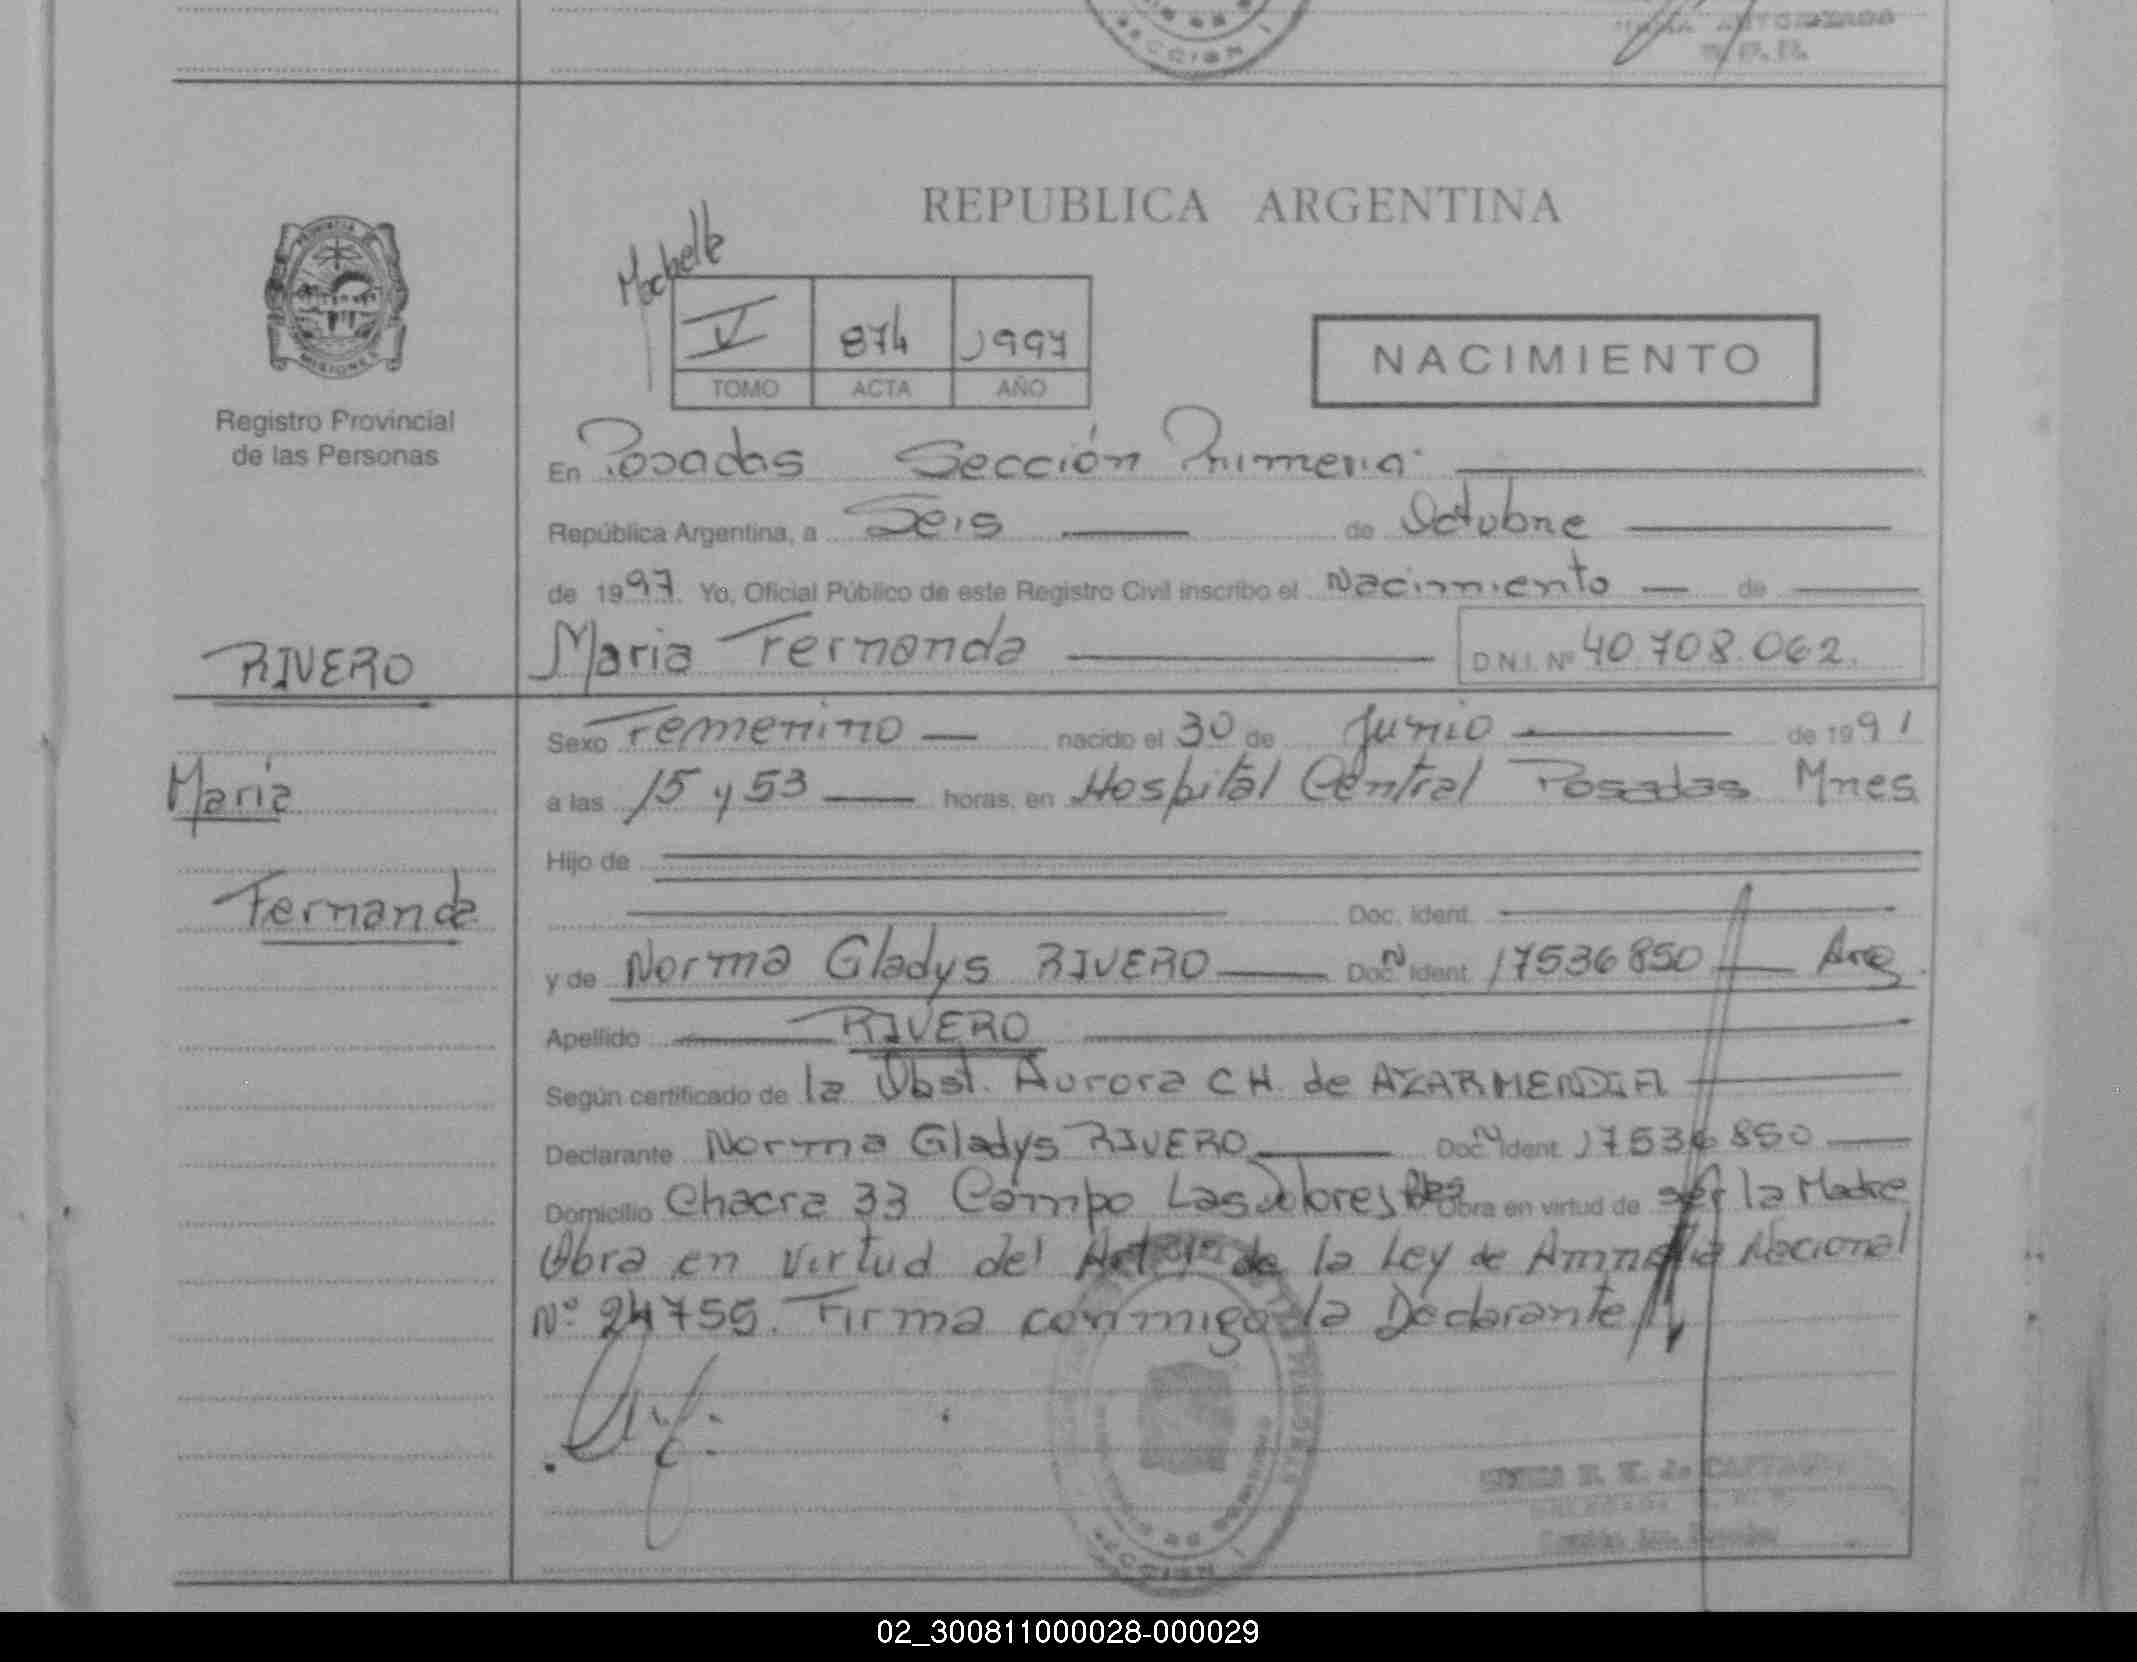 SECCION I
REPUBLICA ARGENTINA
V 874 1997
TOMO ACTA AÑO
NACIMIENTO
MISIONES
Registro Provincial
de las Personas
En Posadas Sección Primera
República Argentina, a Seis de Octubre
de 1997. Yo, Oficial Público de este Registro Civil inscribo el Nacimiento de
RIVERO
Maria Fernanda D.N.I. Nº 40.708.062.
Sexo Femenino nacido el 30 de Junio de 1991
Maria
a las 15 y 53 horas, en Hospital Central Posadas Mnes
Hijo de
Fernanda
Doc. ident.
y de Norma Gladys RIVERO Doc. Ident. N 17536850 Arg
Apellido RIVERO
Según certificado de la Obst. Aurora CH. de AZARMENDIA
Declarante Norma Gladys RIVERO Doc. Ident. N 17536850
Domicilio Chacra 33 Campo Las Dolores Obra en virtud de ser la Madre
Obra en virtud del de la Ley de Amnistia Nacional
Nº 24755. Firma conmigo la Declarante
SECCION I
02_300811000028-000029